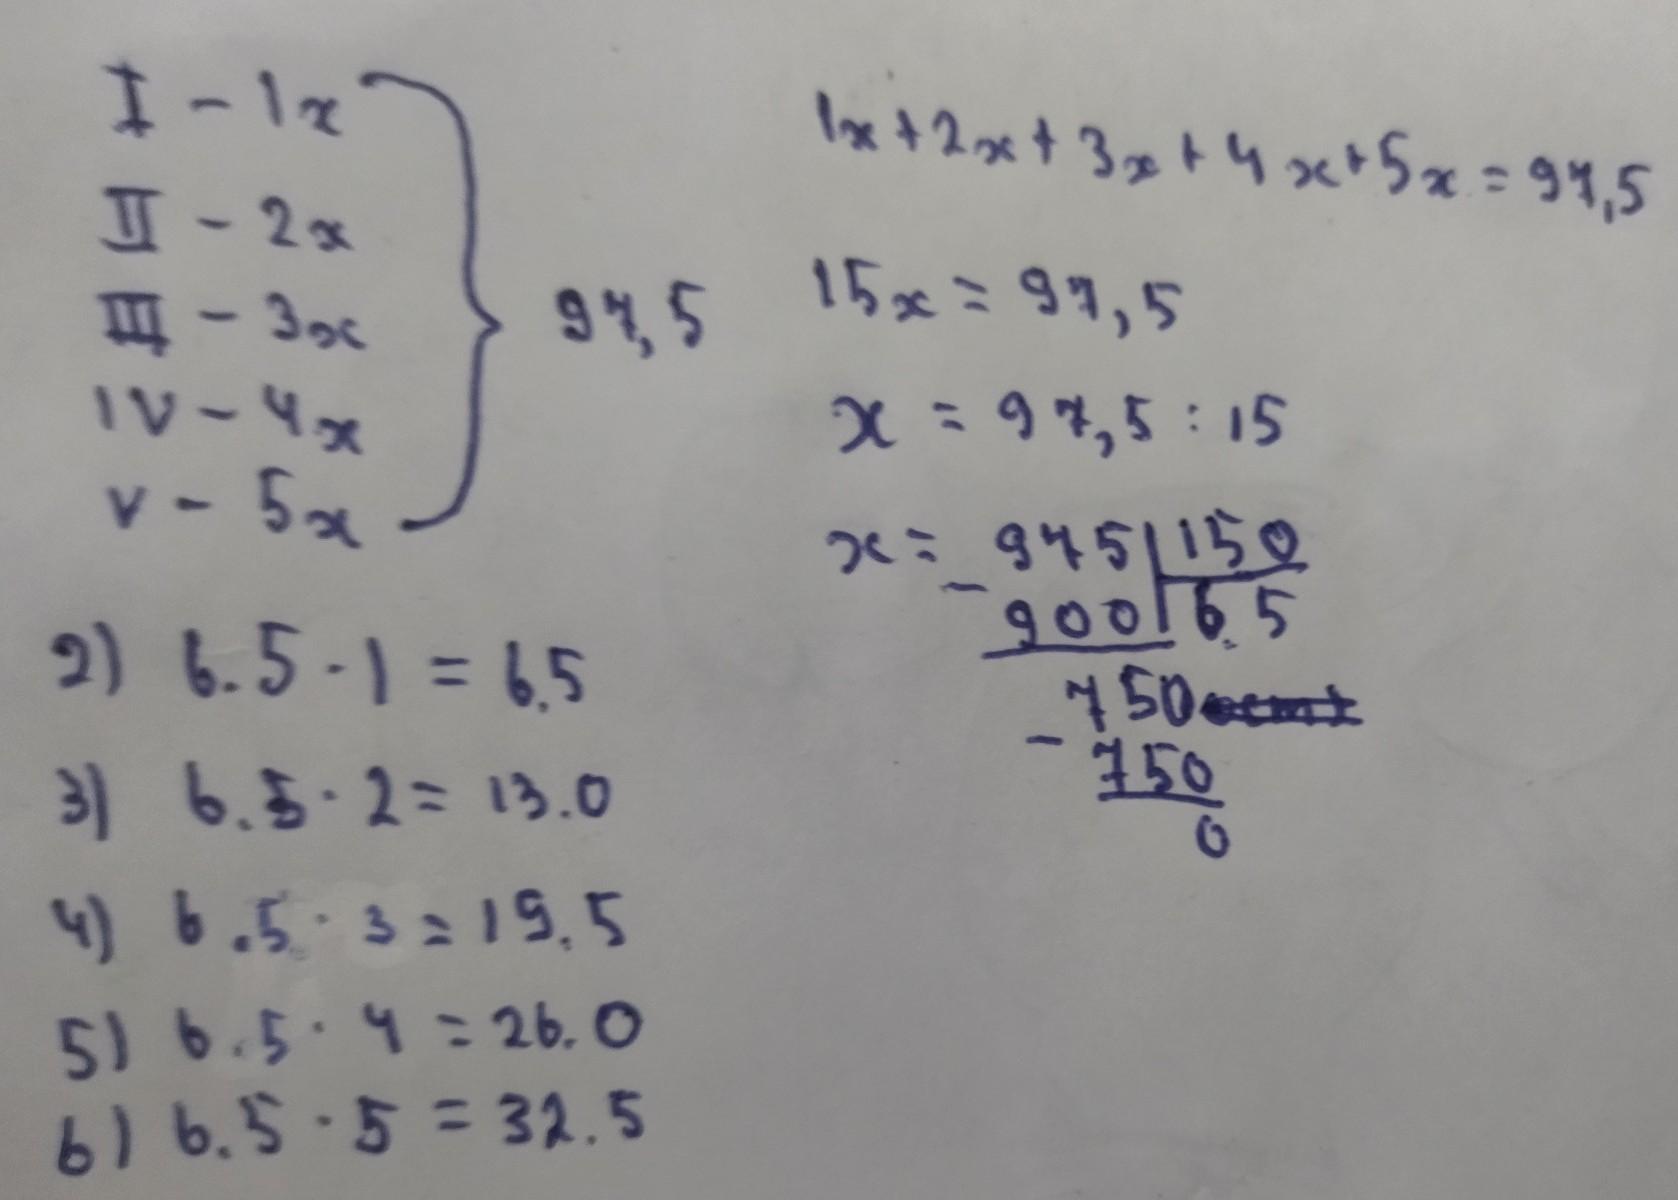 I - 1x
II - 2x
III - 3x
IV - 4x
V - 5x
97,5
1x + 2x + 3x + 4x + 5x = 97,5
15x = 97,5
x = 97,5 : 15
x = 975 | 150
- 900 | 6.5
750
- 750
0
2) 6.5 · 1 = 6.5
3) 6.5 · 2 = 13.0
4) 6.5 · 3 = 19.5
5) 6.5 · 4 = 26.0
6) 6.5 · 5 = 32.5